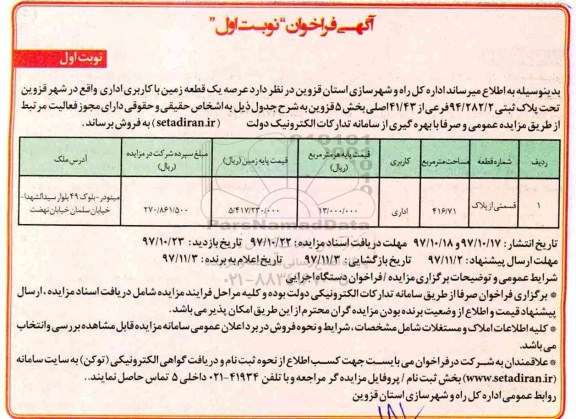 آگهی فراخوان "نوبت اول"
نوبت اول
بدینوسیله به اطلاع میرساند اداره کل راه و شهرسازی استان قزوین در نظر دارد عرصه یک قطعه زمین با کاربری اداری واقع در شهر قزوین
تحت پلاک ثبتی ۹۴/۲۸۲/۲ فرعی از ۴۱/۴۳ اصلی بخش ۵ قزوین به شرح جدول ذیل به اشخاص حقیقی و حقوقی دارای مجوز فعالیت مرتبط
از طریق مزایده عمومی و صرفا با بهره گیری از سامانه تدارکات الکترونیک دولت (setadiran.ir) به فروش برساند.
ردیف شماره قطعه مساحت متر مربع کاربری قیمت پایه هر متر مربع (ریال) قیمت پایه زمین (ریال) مبلغ سپرده شرکت در مزایده (ریال) آدرس ملک
۱ قسمتی از پلاک ۴۱۶/۷۱ اداری ۱۳/۰۰۰/۰۰۰ ۵/۴۱۷/۲۳۰/۰۰۰ ۲۷۰/۸۶۱/۵۰۰ مینودر-بلوک ۴۹ بلوار سیدالشهدا-
خیابان سلمان خیابان نهضت
تاریخ انتشار: ۹۷/۱۰/۱۷ و ۹۷/۱۰/۱۸ مهلت دریافت اسناد مزایده: ۹۷/۱۰/۲۲ تاریخ بازدید: ۹۷/۱۰/۲۳
مهلت ارسال پیشنهاد: ۹۷/۱۱/۲ تاریخ بازگشایی: ۹۷/۱۱/۳ تاریخ اعلام به برنده: ۹۷/۱۱/۳
شرایط عمومی و توضیحات برگزاری مزایده/فراخوان دستگاه اجرایی
* برگزاری فراخوان صرفا از طریق سامانه تدارکات الکترونیکی دولت بوده و کلیه مراحل فرایند مزایده شامل دریافت اسناد مزایده، ارسال
پیشنهاد قیمت و اطلاع از وضعیت برنده بودن مزایده گران محترم از این طریق امکان پذیر می باشد.
* کلیه اطلاعات املاک و مستغلات شامل مشخصات، شرایط و نحوه فروش در برد اعلان عمومی سامانه مزایده قابل مشاهده بررسی و انتخاب
می باشد.
* علاقمندان به شرکت در فراخوان می بایست جهت کسب اطلاع از نحوه ثبت نام و دریافت گواهی الکترونیکی (توکن) به سایت سامانه
(www.setadiran.ir) بخش ثبت نام / پروفایل مزایده گر مراجعه و با تلفن ۴۱۹۳۴-۰۲۱ داخلی ۵ تماس حاصل نمایند..
روابط عمومی اداره کل راه و شهرسازی استان قزوین
ParsNamadData